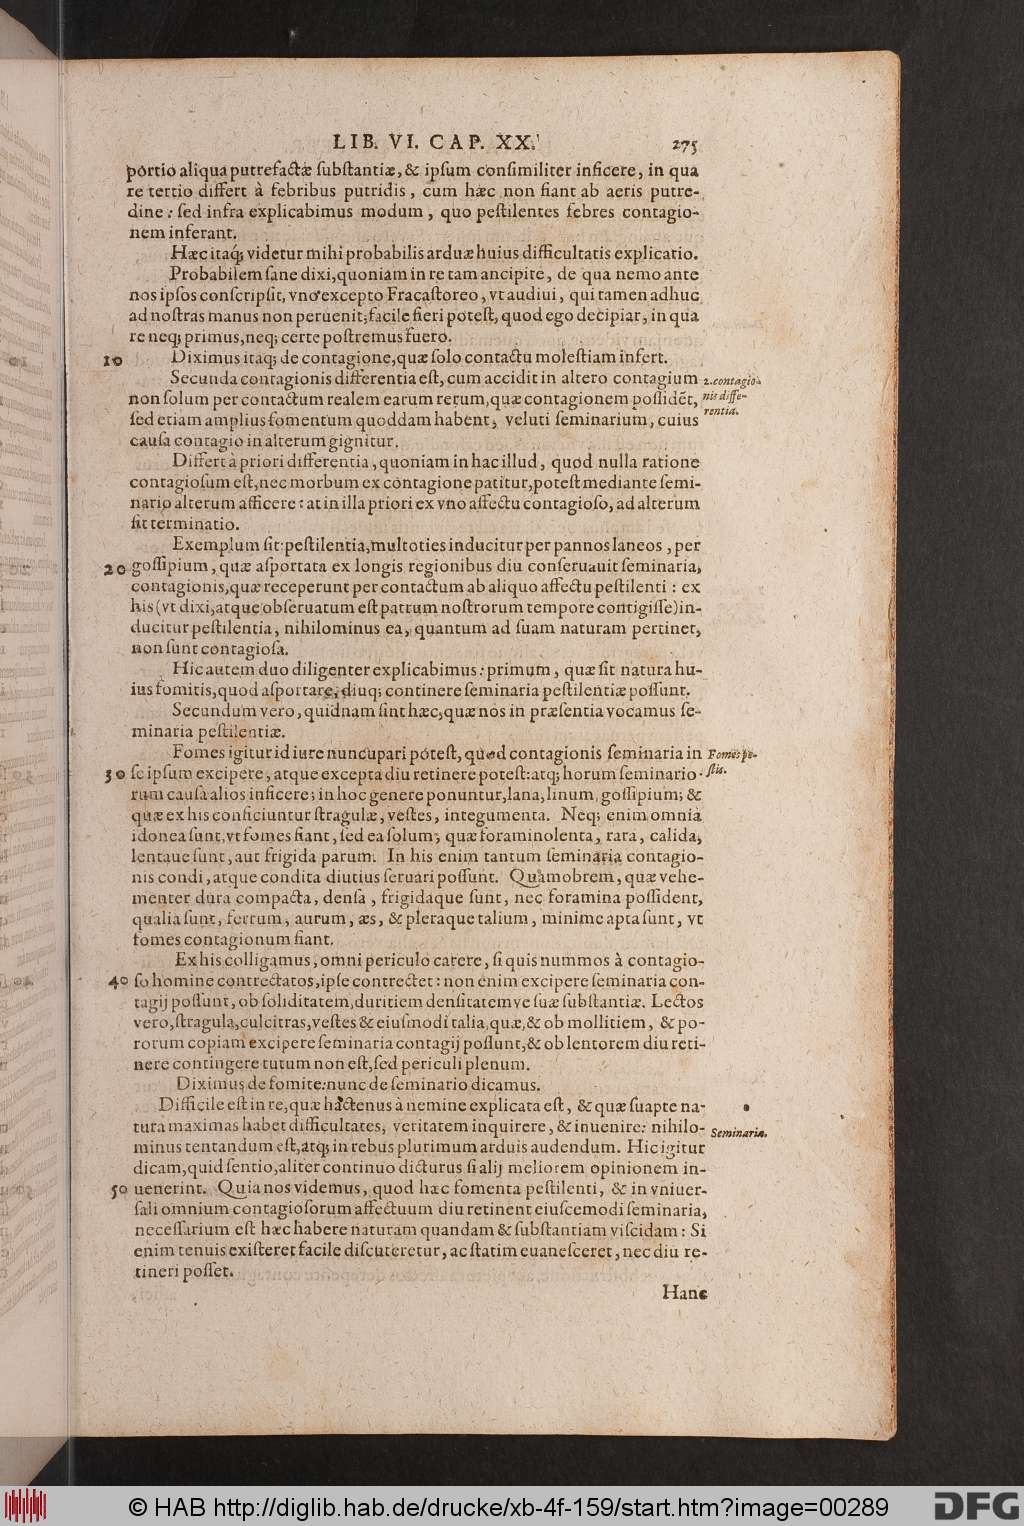 LIB. VI. CAP. XX. 275
portio aliqua putrefactæ ſubſtantiæ, & ipſum conſimiliter inficere, in qua
re tertio differt à febribus putridis, cum hæc non fiant ab aeris putre-
dine: ſed infra explicabimus modum, quo peſtilentes febres contagio-
nem inferant.
Hæc itaq; videtur mihi probabilis arduæ huius difficultatis explicatio.
Probabilem ſane dixi, quoniam in re tam ancipite, de qua nemo ante
nos ipſos conſcripſit, vno excepto Fracaſtoreo, vt audiui, qui tamen adhuc
ad noſtras manus non peruenit; facile fieri poteſt, quod ego decipiar, in qua
re neq; primus, neq; certe poſtremus fuero.
10 Diximus itaq; de contagione, quæ ſolo contactu moleſtiam infert.
Secunda contagionis differentia eſt, cum accidit in altero contagium
2. contagio-
non ſolum per contactum realem earum rerum, quæ contagionem poſſidẽt,
nis diffe-
ſed etiam amplius fomentum quoddam habent, veluti ſeminarium, cuius
rentia.
cauſa contagio in alterum gignitur.
Differt à priori differentia, quoniam in hac illud, quod nulla ratione
contagioſum eſt, nec morbum ex contagione patitur, poteſt mediante ſemi-
nario alterum afficere: at in illa priori ex vno affectu contagioſo, ad alterum
fit terminatio.
Exemplum ſit: peſtilentia, multoties inducitur per pannos laneos, per
20 goſſipium, quæ aſportata ex longis regionibus diu conſeruauit ſeminaria,
contagionis, quæ receperunt per contactum ab aliquo affectu peſtilenti: ex
his (vt dixi, atque obſeruatum eſt patrum noſtrorum tempore contigiſſe) in-
ducitur peſtilentia, nihilominus ea, quantum ad ſuam naturam pertinet,
non ſunt contagioſa.
Hic autem duo diligenter explicabimus: primum, quæ ſit natura hu-
ius fomitis, quod aſportare, diuq; continere ſeminaria peſtilentiæ poſſunt.
Secundum vero, quidnam ſint hæc, quæ nos in præſentia vocamus ſe-
minaria peſtilentiæ.
Fomes igitur id iure nuncupari poteſt, quod contagionis ſeminaria in
Fomes pe-
30 ſe ipſum excipere, atque excepta diu retinere poteſt: atq; horum ſeminario-
ſtis.
rum cauſa alios inficere; in hoc genere ponuntur, lana, linum, goſſipium; &
quæ ex his conficiuntur ſtragulæ, veſtes, integumenta. Neq; enim omnia
idonea ſunt, vt fomes fiant, ſed ea ſolum, quæ foraminolenta, rara, calida,
lentaue ſunt, aut frigida parum. In his enim tantum ſeminaria contagio-
nis condi, atque condita diutius ſeruari poſſunt. Quamobrem, quæ vehe-
menter dura compacta, denſa, frigidaque ſunt, nec foramina poſſident,
qualia ſunt, ferrum, aurum, æs, & pleraque talium, minime apta ſunt, vt
fomes contagionum fiant.
Ex his colligamus, omni periculo carere, ſi quis nummos à contagio-
40 ſo homine contrectatos, ipſe contrectet: non enim excipere ſeminaria con-
tagij poſſunt, ob ſoliditatem, duritiem denſitatemve ſuæ ſubſtantiæ. Lectos
vero, ſtragula, culcitras, veſtes & eiuſmodi talia, quæ, & ob mollitiem, & po-
rorum copiam excipere ſeminaria contagij poſſunt, & ob lentorem diu reti-
nere contingere tutum non eſt, ſed periculi plenum.
Diximus de fomite: nunc de ſeminario dicamus.
Difficile eſt in re, quæ hactenus à nemine explicata eſt, & quæ ſuapte na-
tura maximas habet difficultates, veritatem inquirere, & inuenire: nihilo-
Seminaria.
minus tentandum eſt, atq; in rebus plurimum arduis audendum. Hic igitur
dicam, quid ſentio, aliter continuo dicturus ſi alij meliorem opinionem in-
50 uenerint. Quia nos videmus, quod hæc fomenta peſtilenti, & in vniuer-
ſali omnium contagioſorum affectuum diu retinent eiuſcemodi ſeminaria,
neceſſarium eſt hæc habere naturam quandam & ſubſtantiam viſcidam: Si
enim tenuis exiſteret facile diſcuteretur, ac ſtatim euaneſceret, nec diu re-
tineri poſſet.
Hanc
© HAB http://diglib.hab.de/drucke/xb-4f-159/start.htm?image=00289
DFG